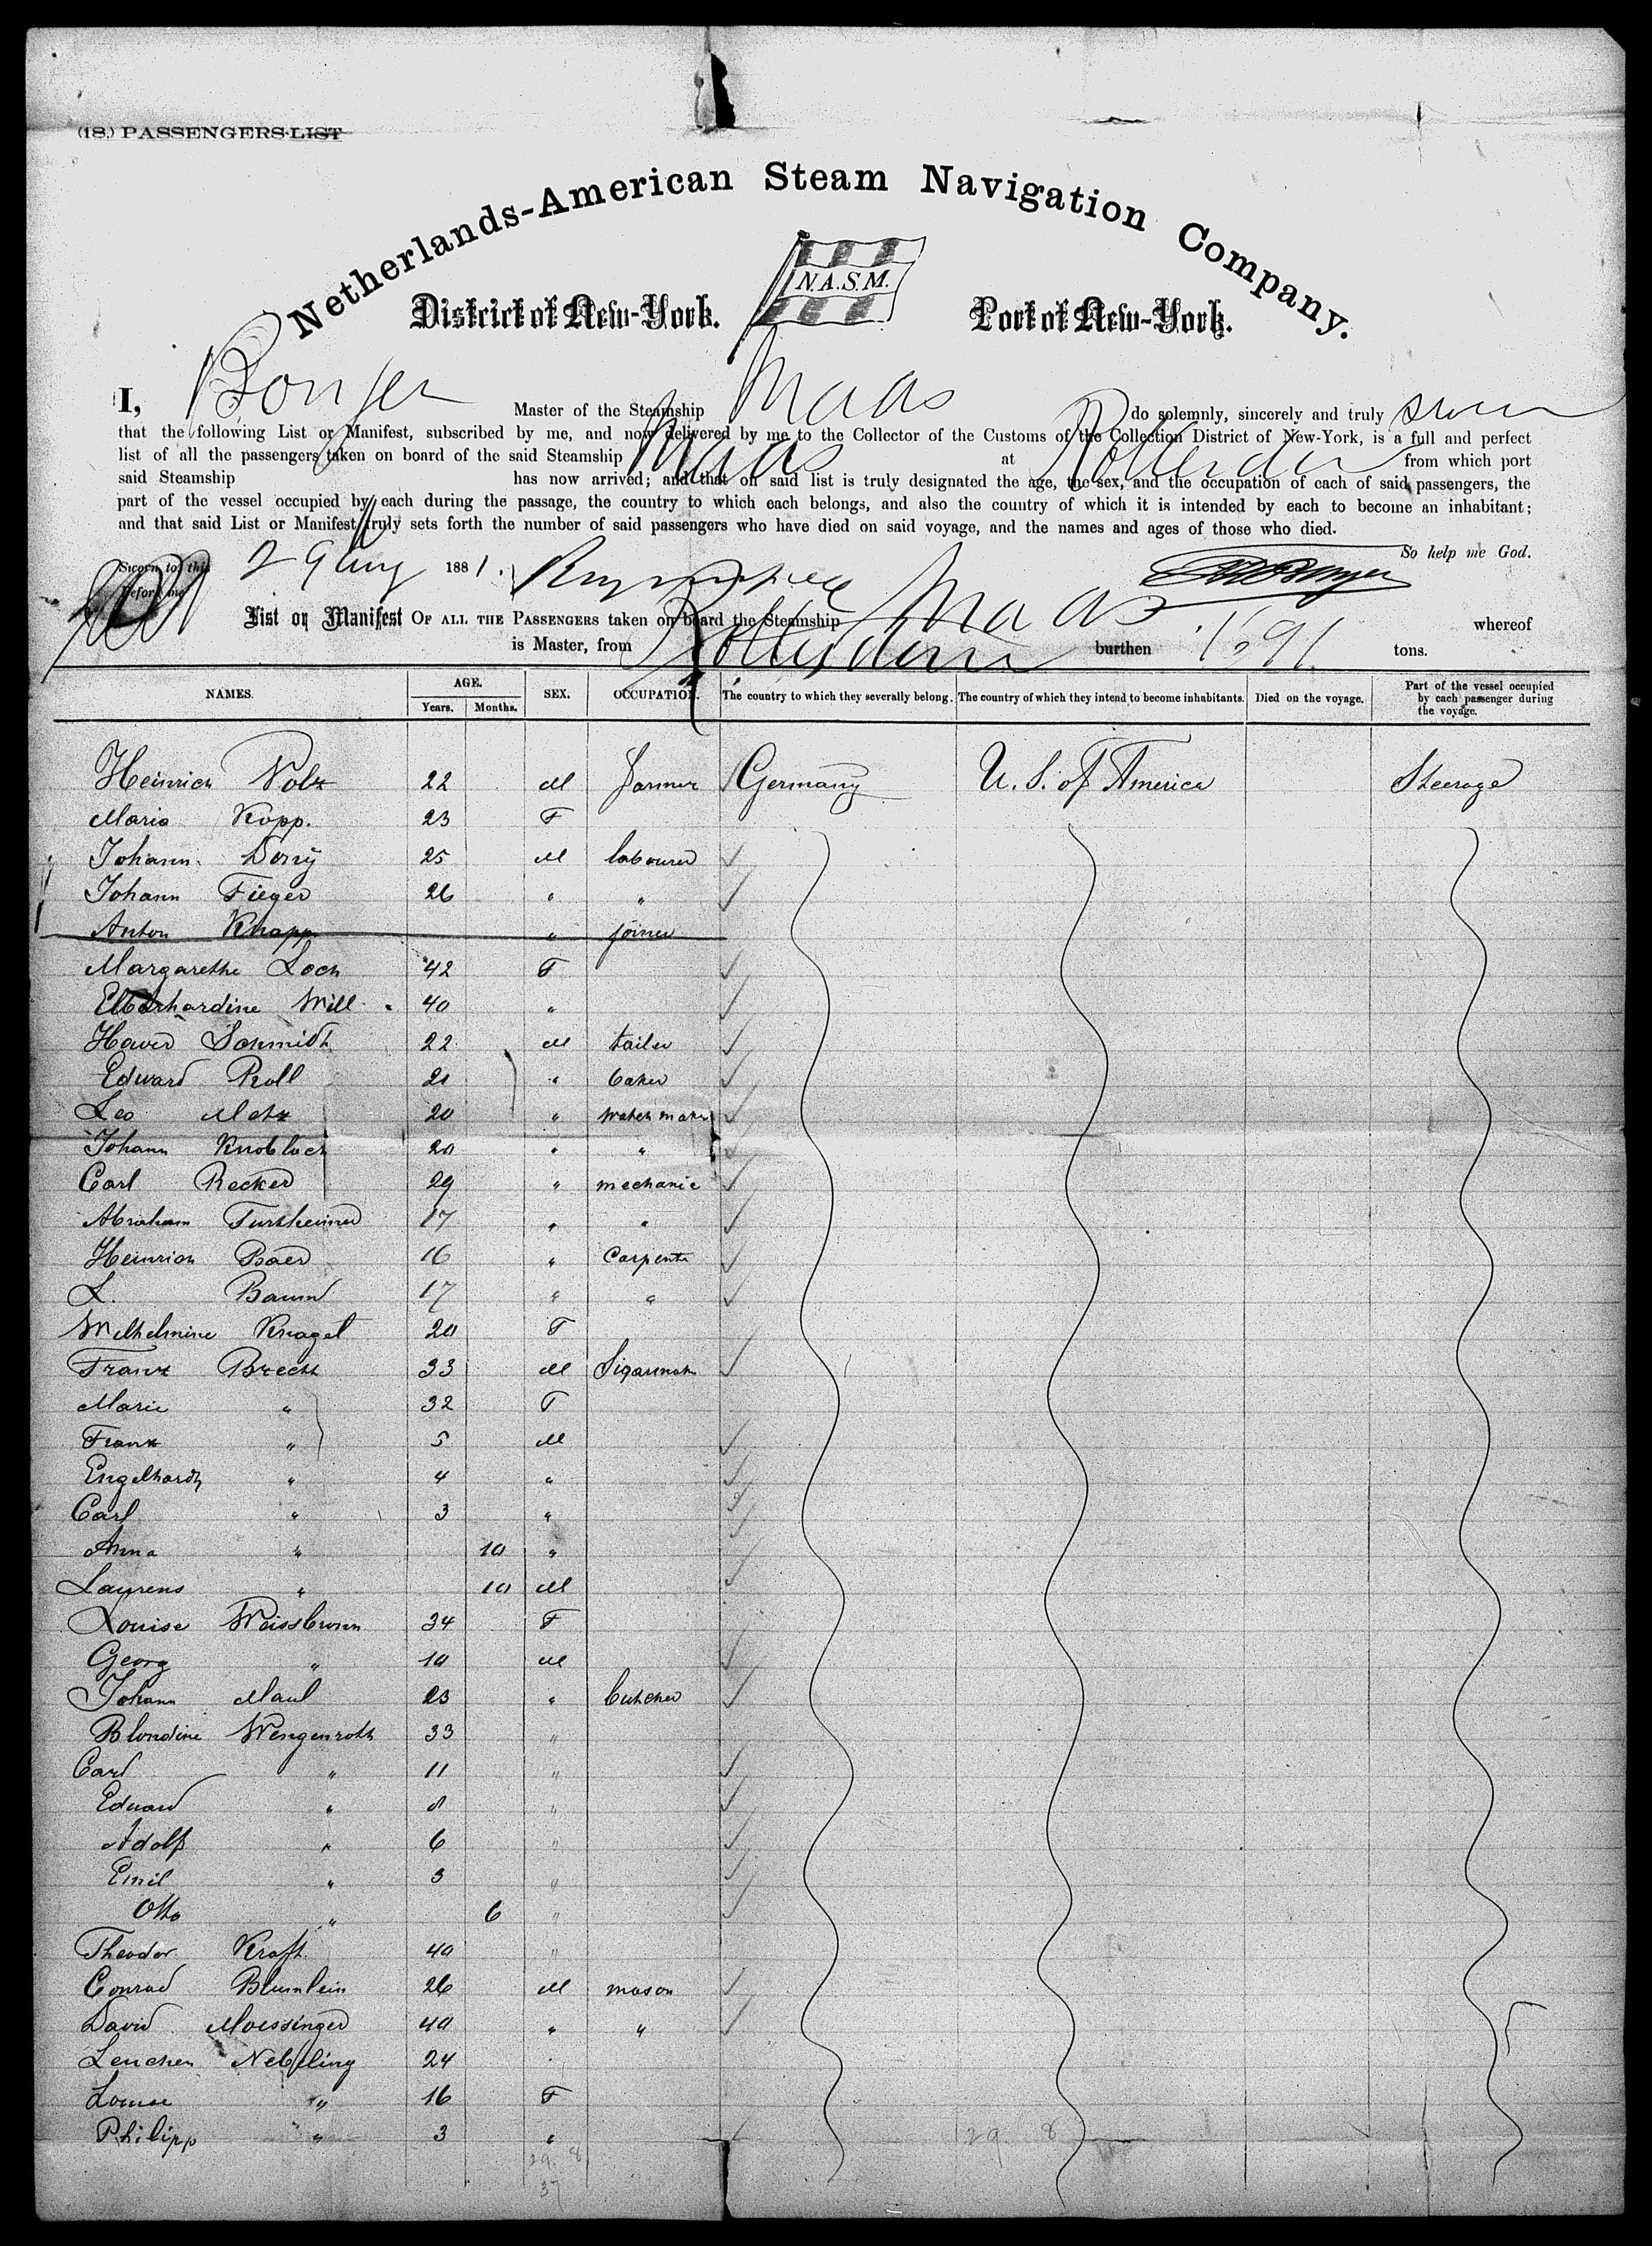 (18.) PASSENGERS-LIST
Netherlands-American Steam Navigation Company.
N.A.S.M.
District of New-York. Port of New-York.
I, Master of the Steamship Maas do solemnly, sincerely and truly swear
that the following List or Manifest, subscribed by me, and now delivered by me to the Collector of the Customs of the Collection District of New-York, is a full and perfect
list of all the passengers taken on board of the said Steamship Maas at Rotterdam from which port
said Steamship has now arrived; and that on said list is truly designated the age, the sex, and the occupation of each of said passengers, the
part of the vessel occupied by each during the passage, the country to which each belongs, and also the country of which it is intended by each to become an inhabitant;
and that said List or Manifest truly sets forth the number of said passengers who have died on said voyage, and the names and ages of those who died.
So help me God.
Sworn to this 29 Aug 1881.
Before me
List or Manifest OF ALL THE PASSENGERS taken on board the Steamship Maas whereof
is Master, from Rotterdam burthen 1691 tons.
NAMES. AGE. SEX. OCCUPATION. The country to which they severally belong. The country of which they intend to become inhabitants. Died on the voyage. Part of the vessel occupied by each passenger during the voyage.
Years. Months.
Heinrich Volz 22 M farmer Germany U. S. of America Steerage
Maria Kopp. 23 F
Johann Dorry 25 M labourer
Johann Fieger 26 " "
Anton Knapp " joiner
Margarethe Loch 42 F
Eberhardine Will 40 "
Haver Schmidt 22 M tailer
Edward Roll 21 " baker
Leo Metz 20 " watch maker
Johann Knobloch 20 " "
Carl Recker 29 " mechanic
Abraham Furtheimer 17 " "
Heinrich Baer 16 " Carpente
L. Baum 17 " "
Wilhelmine Knagel 20 F
Franz Brecht 33 M Sigarmak
Marie " 32 F
Franz " 5 M
Engelhardt " 4 "
Carl " 3 "
Anna " 10 "
Laurens " 10 M
Louise Weissbrunn 34 F
Georg " 10 M
Johann Maul 23 " butcher
Blondine Wengenroth 33 "
Carl " 11 "
Eduard " 8 "
Adolf " 6 "
Emil " 3 "
Otto " 6 "
Theodor Kraft 40 "
Conrad Blumlein 26 M mason
David Moessinger 40 " "
Lenchen Nebeling 24
Louise " 16 F
Philipp " 3 "
29. 8 29 8
37